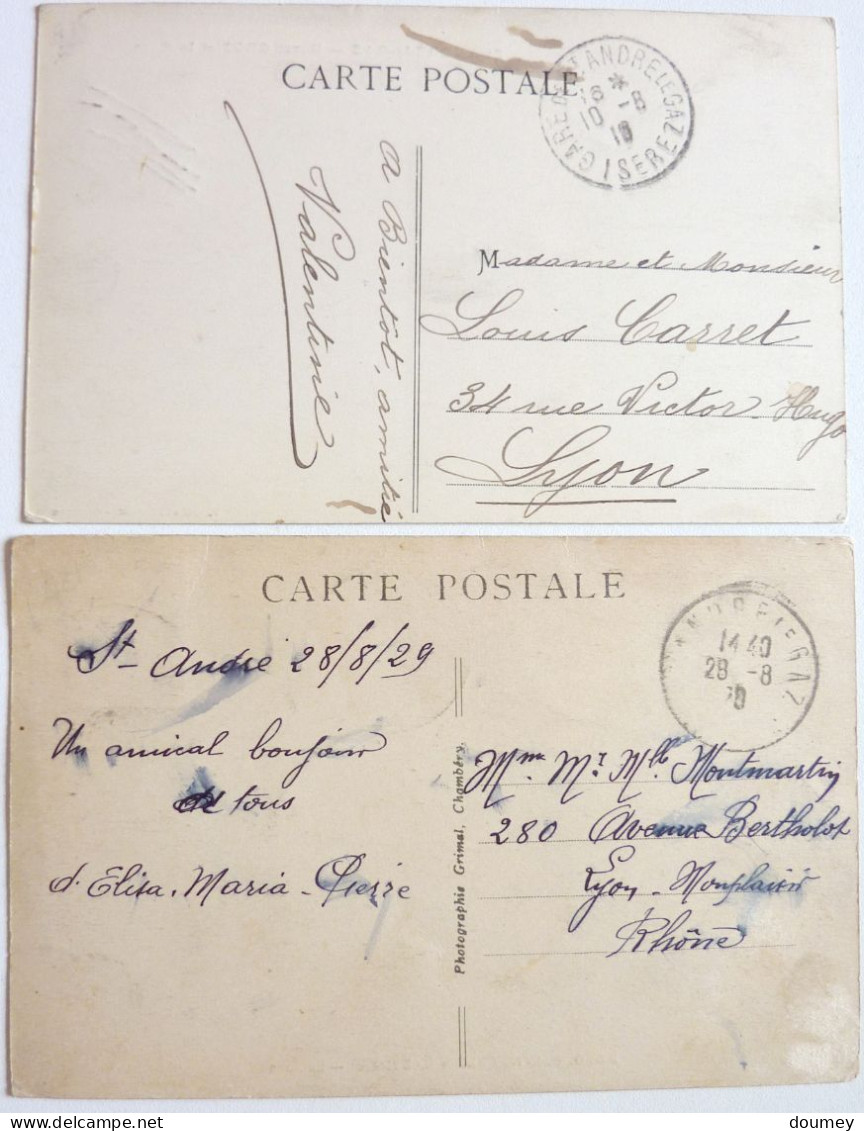 CARTE POSTALE
GARE DE ST ANDRE LE GAZ
16 - 8
10
ISERE
a Bientôt, amitié
Valentine
Madame et Monsieur
Louis Carret
34 rue Victor-Hugo
Lyon
CARTE POSTALE
14 40
28 -8
St André 28/8/29
Un amical bonjour
de tous
d'Elisa. Maria - Pierre
Photographie Grimal, Chambéry.
Mme Mr Mlle Montmartin
280 Avenue Bertholot
Lyon - Monplaisir
Rhône
doumey